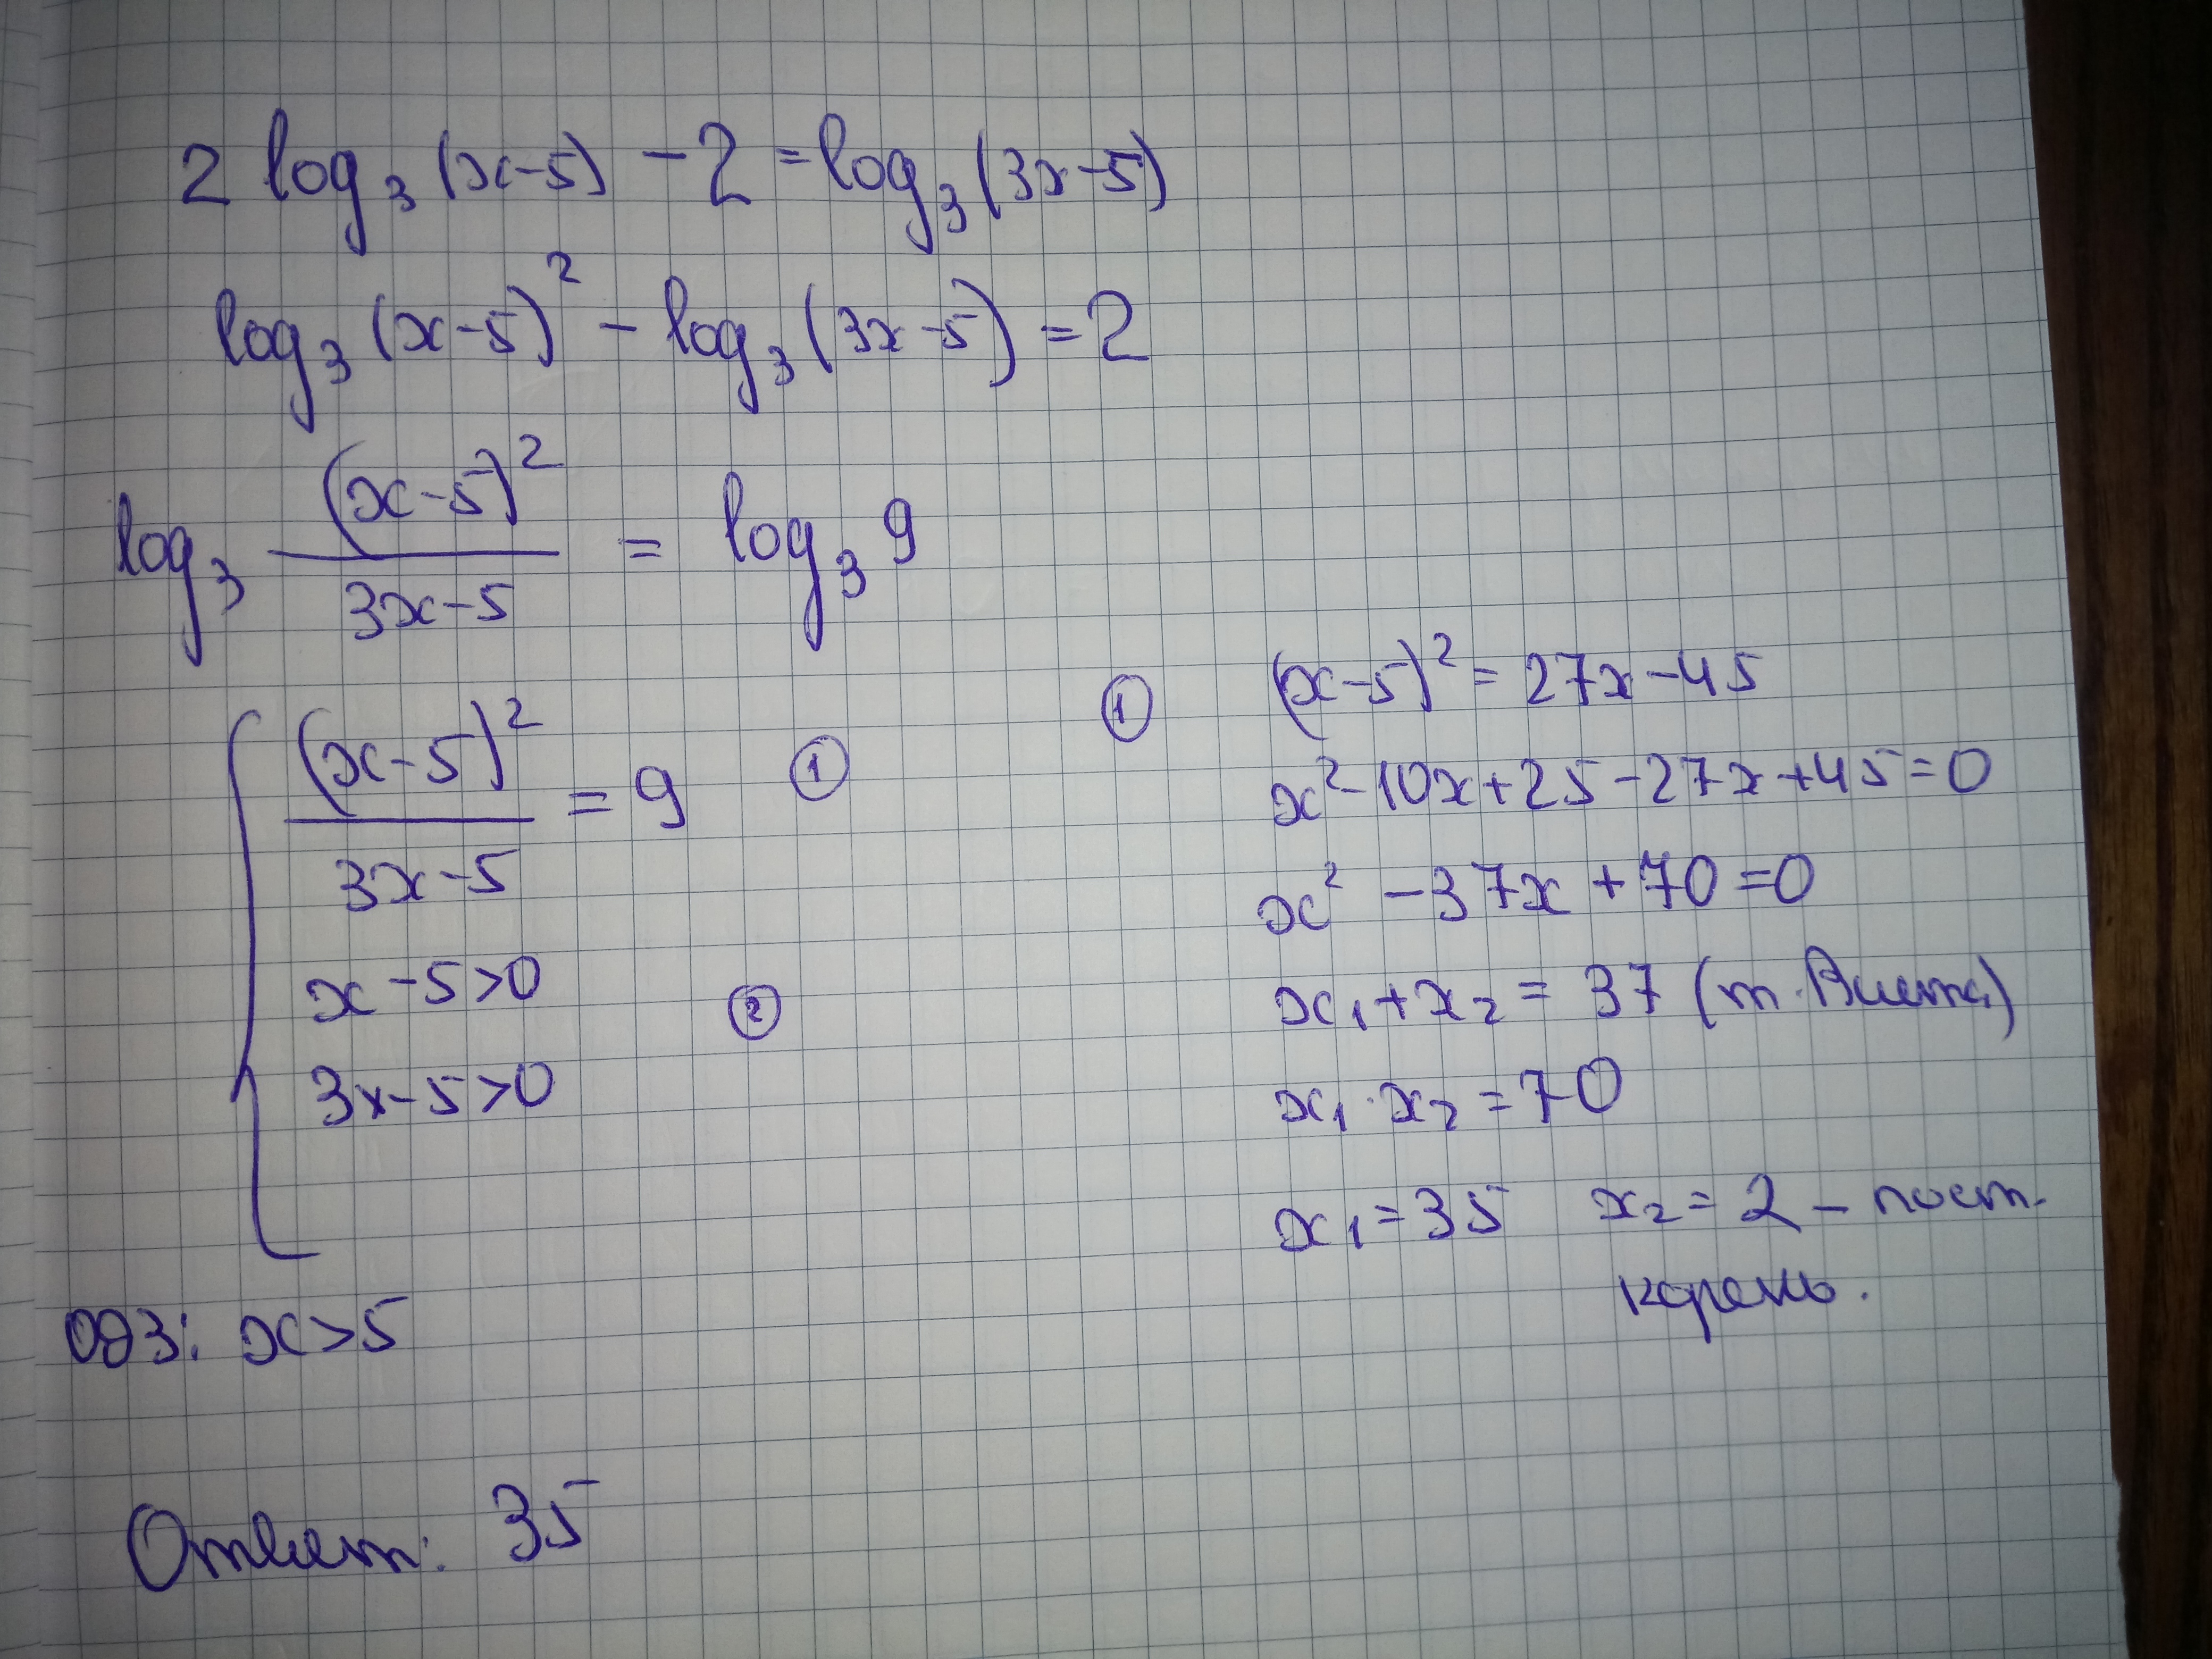 2 log₃(x-5) - 2 = log₃(3x-5)
log₃(x-5)² - log₃(3x-5) = 2
log₃ (x-5)²/(3x-5) = log₃ 9
(x-5)²/(3x-5) = 9 ①
x-5>0
3x-5>0 ②
ОДЗ: x>5
① (x-5)² = 27x-45
x²-10x+25-27x+45=0
x² -37x +70=0
x₁+x₂ = 37 (т. Виета)
x₁·x₂ = 70
x₁=35 x₂=2 - пост.
корень.
Ответ: 35